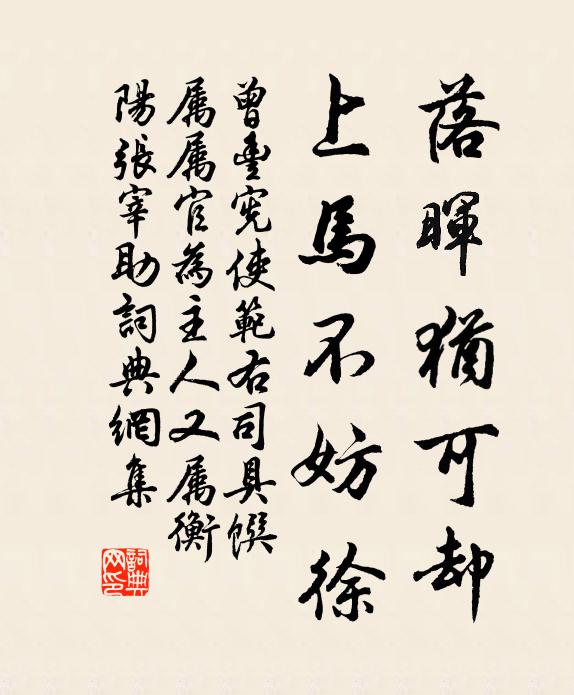 落暉猶可却
上馬不妨徐
曾豐宪使範右司具饌
属属官為主人又属衡
陽張宰助詞典網集
詞典
网印